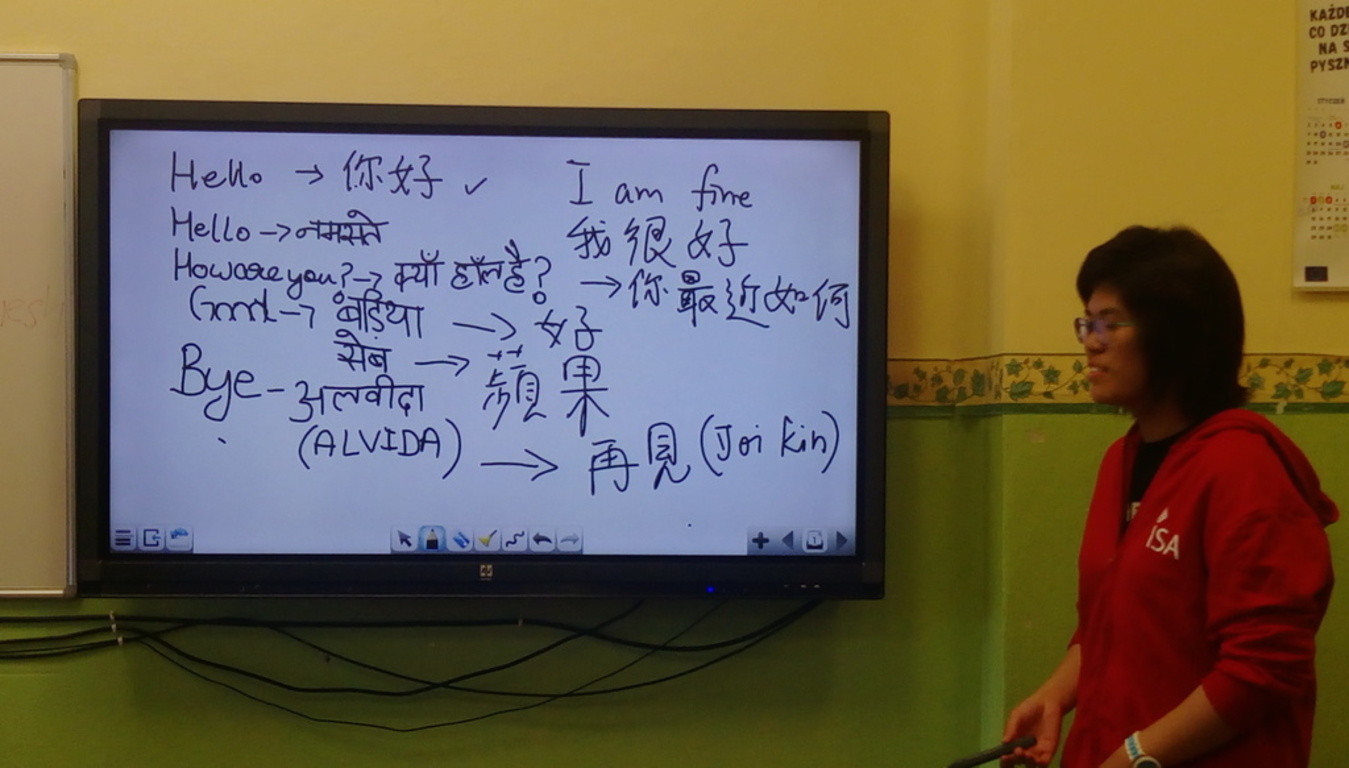 Hello → 你好 ✓
I am fine
Hello → नमस्ते
我很好
How are you? → क्याँ हॉल है?
→ 你最近如何
Good → बड़िया → 好
सेब → 蘋果
Bye - अलवीदा
(ALVIDA) → 再見 (Joi kin)
ISA
KAŻDE
CO DZ
NA S
PYSZN
STYCZEŃ
hp